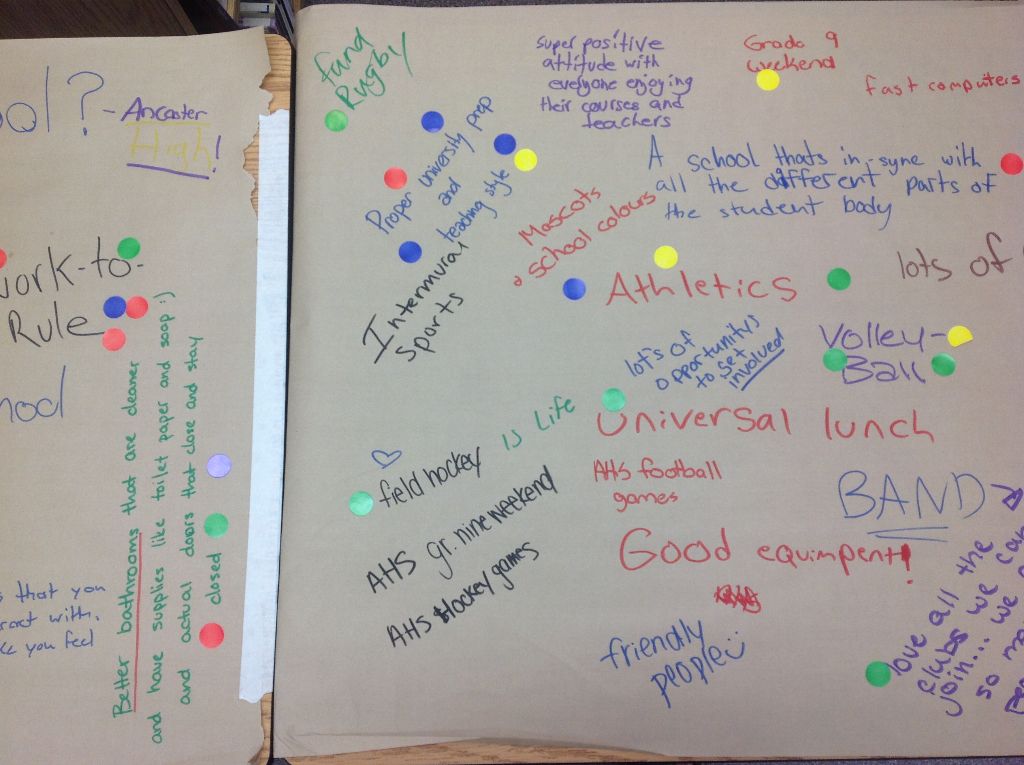 ool? - Ancaster
High!
work-to-
Rule
Better bathrooms that are cleaner
and have supplies like toilet paper and soap :)
and actual doors that close and stay
closed
that you
with.
you feel
fund
Rugby
Proper university prep
and
teaching style
Intermural
Sports
super positive
attitude with
everyone enjoying
their courses and
teachers
Grade 9
weekend
fast computers
A school thats in-sync with
all the different parts of
the student body
Mascots
& school colours
Athletics
lots of
Volley-
Ball
lots of
opportunitys
to get
involved
Universal lunch
field hockey is Life
AHS football
games
AHS gr. nine weekend
AHS Hockey games
BAND
Good equimpent!
friendly
people
love all the
clubs we can
join... we
so